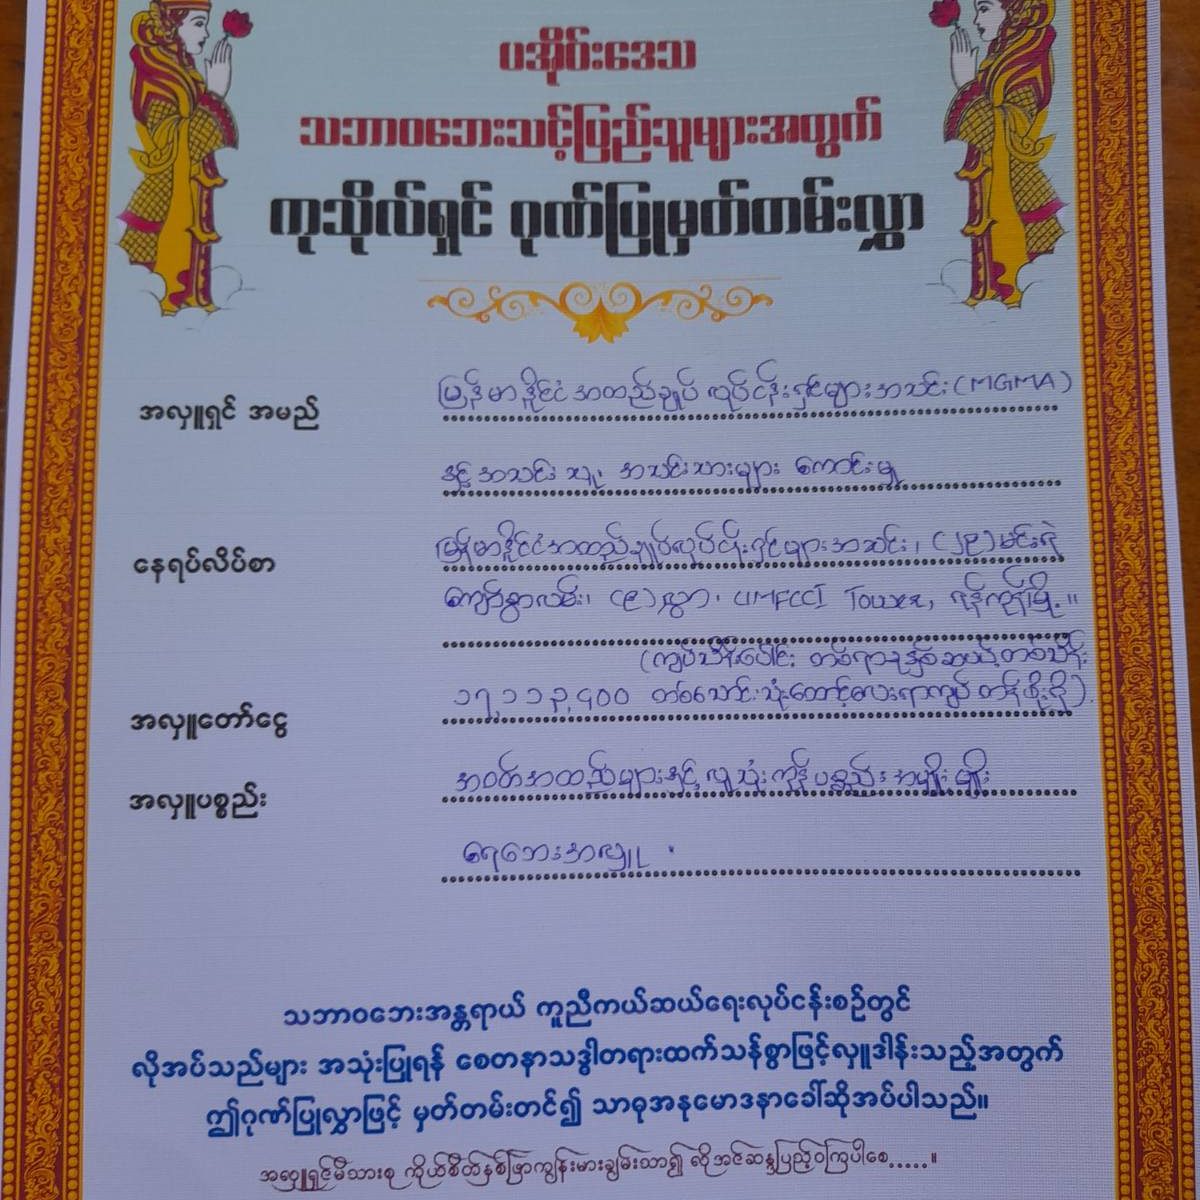 ပအိုဝ်းဒေသ
သဘာဝဘေးသင့်ပြည်သူများအတွက်
ကုသိုလ်ရှင် ဂုဏ်ပြုမှတ်တမ်းလွှာ
အလှူရှင် အမည် မြန်မာနိုင်ငံအထည်ချုပ်လုပ်ငန်းရှင်များအသင်း (MGMA)
နှင့် အသင်းသူ၊ အသင်းသားများ ကောင်းမှု
နေရပ်လိပ်စာ မြန်မာနိုင်ငံအထည်ချုပ်လုပ်ငန်းရှင်များအသင်း၊ (၂၉) မင်းရဲ
ကျော်စွာလမ်း၊ (၉) လွှာ၊ UMFCCI Tower, ရန်ကုန်မြို့။
(ကျပ်သိန်းပေါင်း တစ်ရာ့ခုနှစ်ဆယ့်တစ်သိန်း
အလှူတော်ငွေ ၁၇,၁၁၃,၄၀၀ တစ်သောင်းသုံးထောင့်လေးရာကျပ်တန်ဖိုးရှိ)
အလှူပစ္စည်း အဝတ်အထည်များနှင့် လူသုံးကုန်ပစ္စည်းအမျိုးမျိုး
ရေဘေးအလှူ
သဘာဝဘေးအန္တရာယ် ကူညီကယ်ဆယ်ရေးလုပ်ငန်းစဉ်တွင်
လိုအပ်သည်များ အသုံးပြုရန် စေတနာသဒ္ဓါတရားထက်သန်စွာဖြင့်လှူဒါန်းသည့်အတွက်
ဤဂုဏ်ပြုလွှာဖြင့် မှတ်တမ်းတင်၍ သာဓုအနုမောဒနာခေါ်ဆိုအပ်ပါသည်။
အလှူရှင်မိသားစု ကိုယ်စိတ်နှစ်ဖြာကျန်းမာချမ်းသာ၍ လိုအင်ဆန္ဒပြည့်ဝကြပါစေ.....။